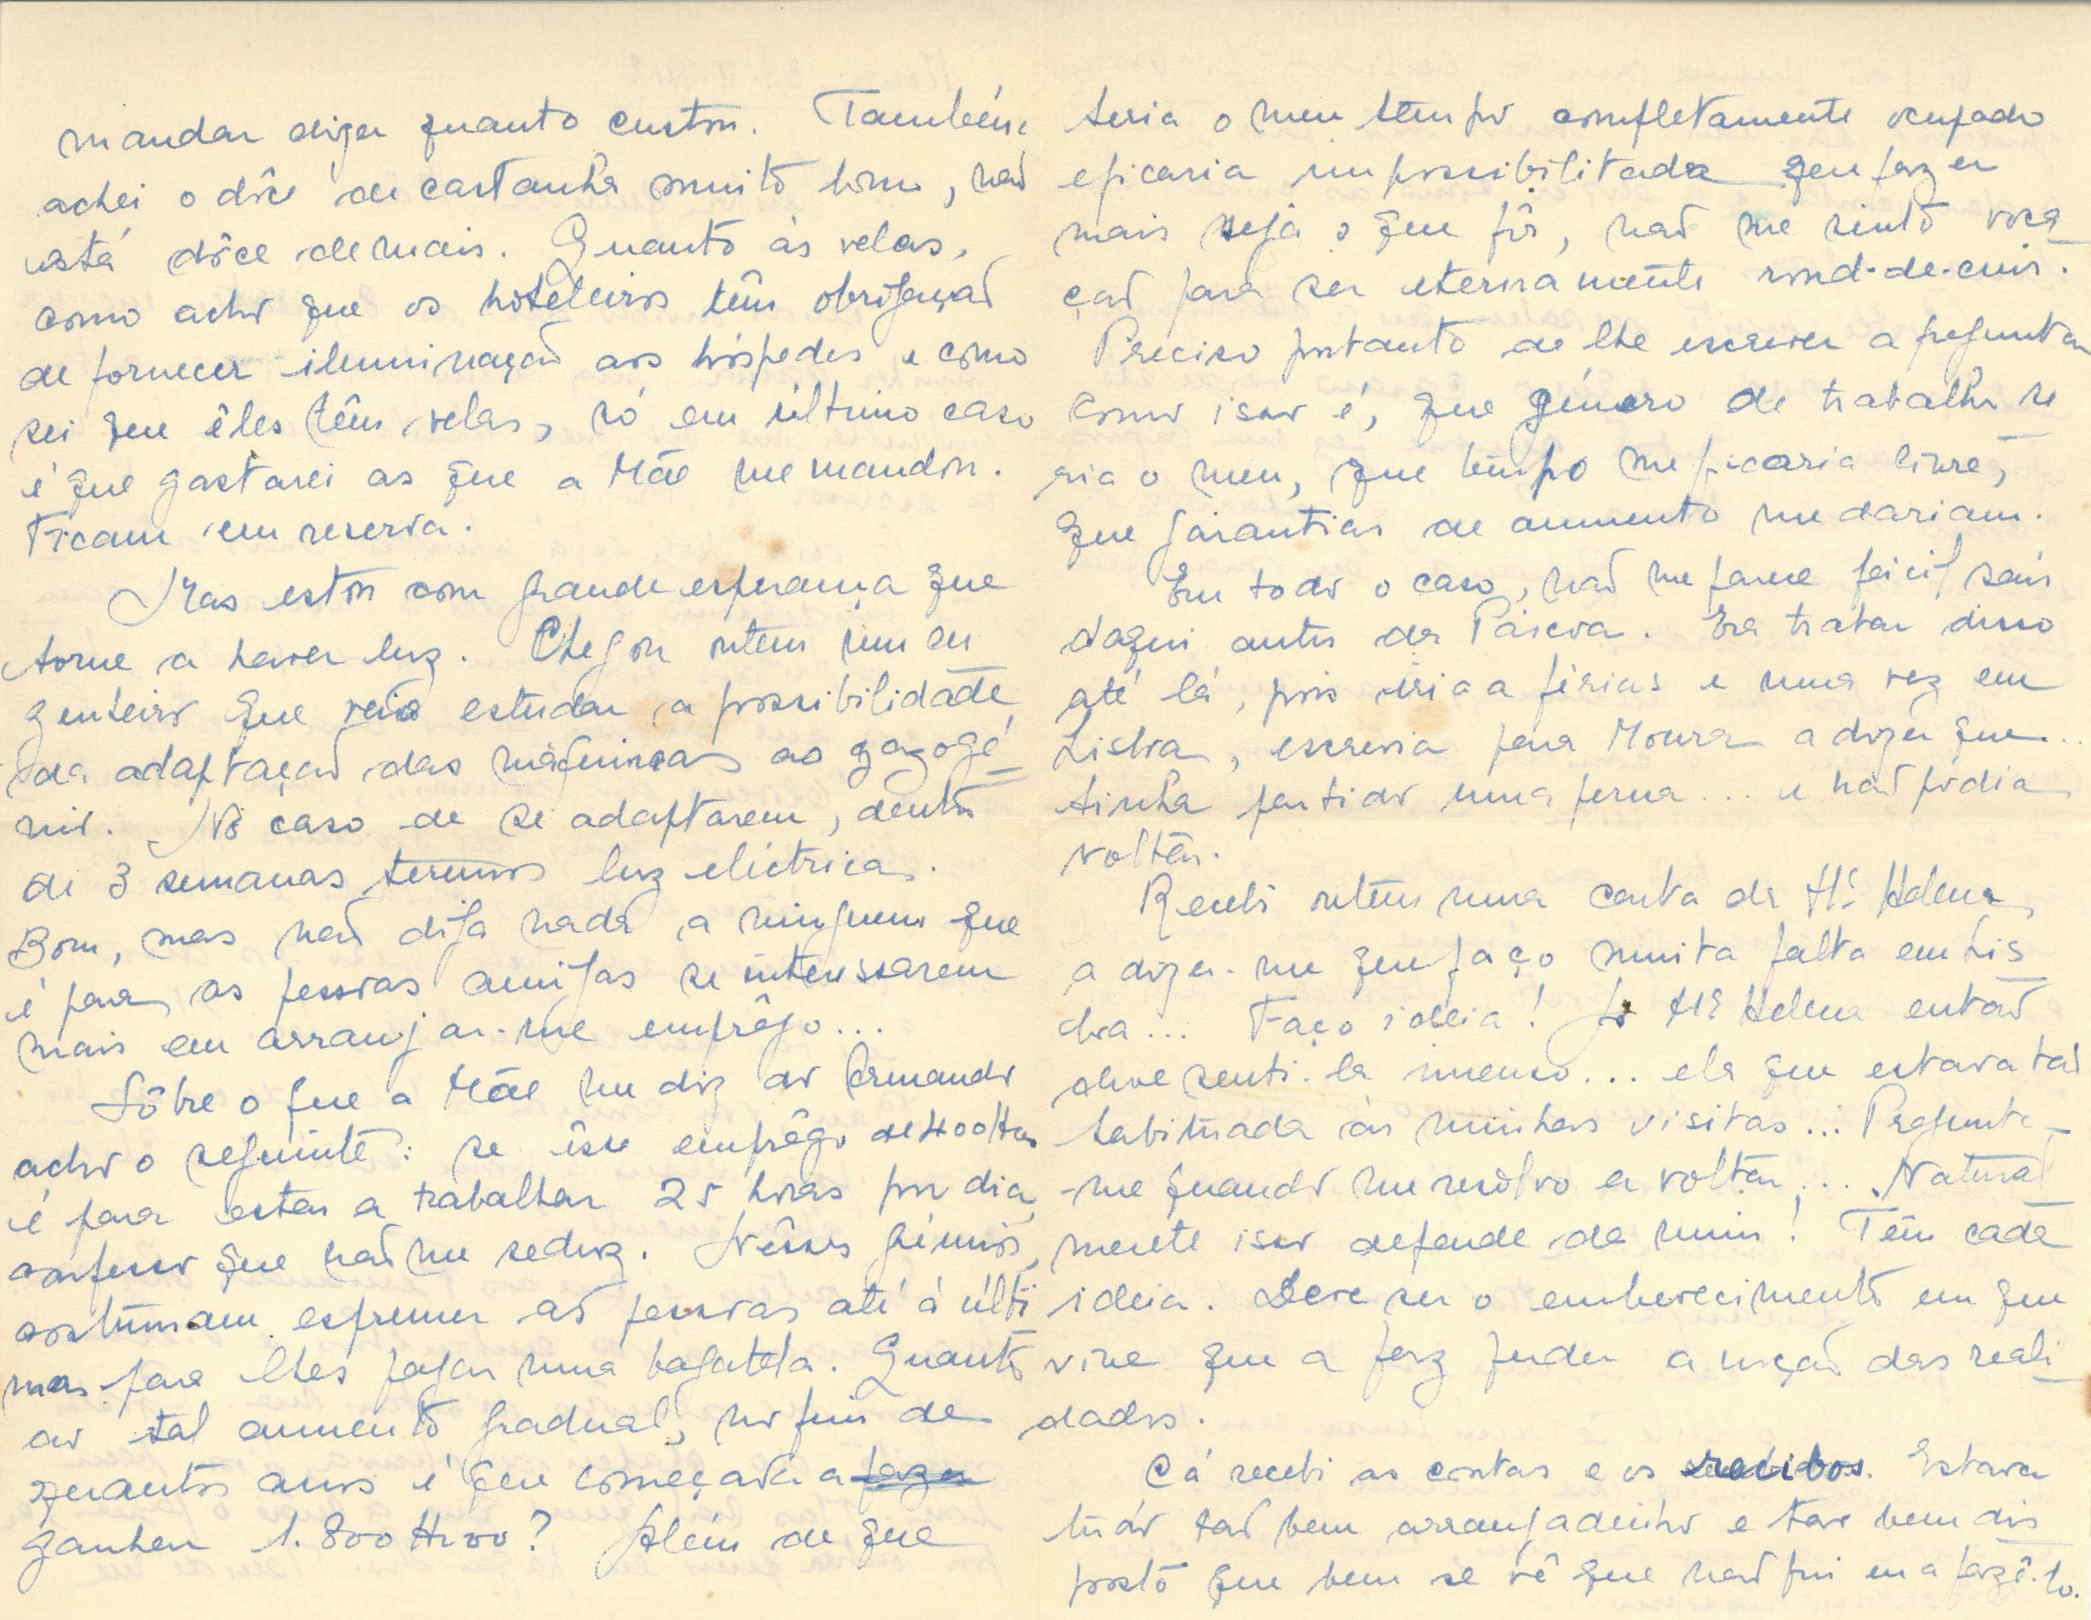 mandar dizer quanto custou. Também
achei o dôce de castanha muito bom, não
está dôce demais. Quanto às velas,
como acho que os hoteleiros têm obrigação
de fornecer iluminação aos hóspedes e como
sei que êles têm velas, só em último caso
é que gastarei as que a Mãe me mandou.
Ficam em reserva.
Mas estou com grande esperança que
torne a haver luz. Chegou ontem um en
genheiro que veio estudar a possibilidade
da adaptação das máquinas ao gazogé
nio. No caso de se adaptarem, dentro
de 3 semanas teremos luz eléctrica.
Bom, mas não diga nada a ninguem que
é para as pessoas amigas se interessarem
mais em arranjar-me emprêgo...
Sôbre o que a Mãe me diz do Armando
acho o seguinte: se êsse emprêgo de 400$00
é para estar a trabalhar 25 horas por dia,
confesso que não me seduz. Nêsses grémios,
costumam espremer as pessoas até à últi
mas para lhes pagar uma bagatela. Quanto
ao tal aumento gradual, no fim de
quantos anos é que começaria a fazer
ganhar 1.800$00? Além de que
teria o meu tempo completamente ocupado
e ficaria impossibilitada de fazer
mais seja o que fôr, não me sinto voca
ção para ser eternamente rond-de-cuir.
Preciso portanto de lhe escrever a preguntar
como isso é, que género de trabalho se
ria o meu, que tempo me ficaria livre,
que garantias de aumento me dariam.
Em todo o caso, não me parece fácil sair
daqui antes da Páscoa. Era tratar disso
até lá, pois iria a férias e uma vez em
Lisboa, escrevia para Moura a dizer que..
tinha partido uma perna... e não podia
voltar.
Recebi ontem uma carta da Mª Helena,
a dizer-me que faço muita falta em Lis
boa... Faço ideia! Mª Helena então
deve senti-la imenso... ela que estava tão
habituada às minhas visitas... Pregunta-
-me quando me resolvo a voltar... Natural
mente isso depende de mim! Tem cada
ideia. Deve ser o embevecimento em que
vive que a faz perder a noção das reali
dades.
Cá recebi as contas e os recibos. Estava
tudo tão bem arranjadinho e tão bem dis
posto que bem se vê que não fui eu a fazê-lo.